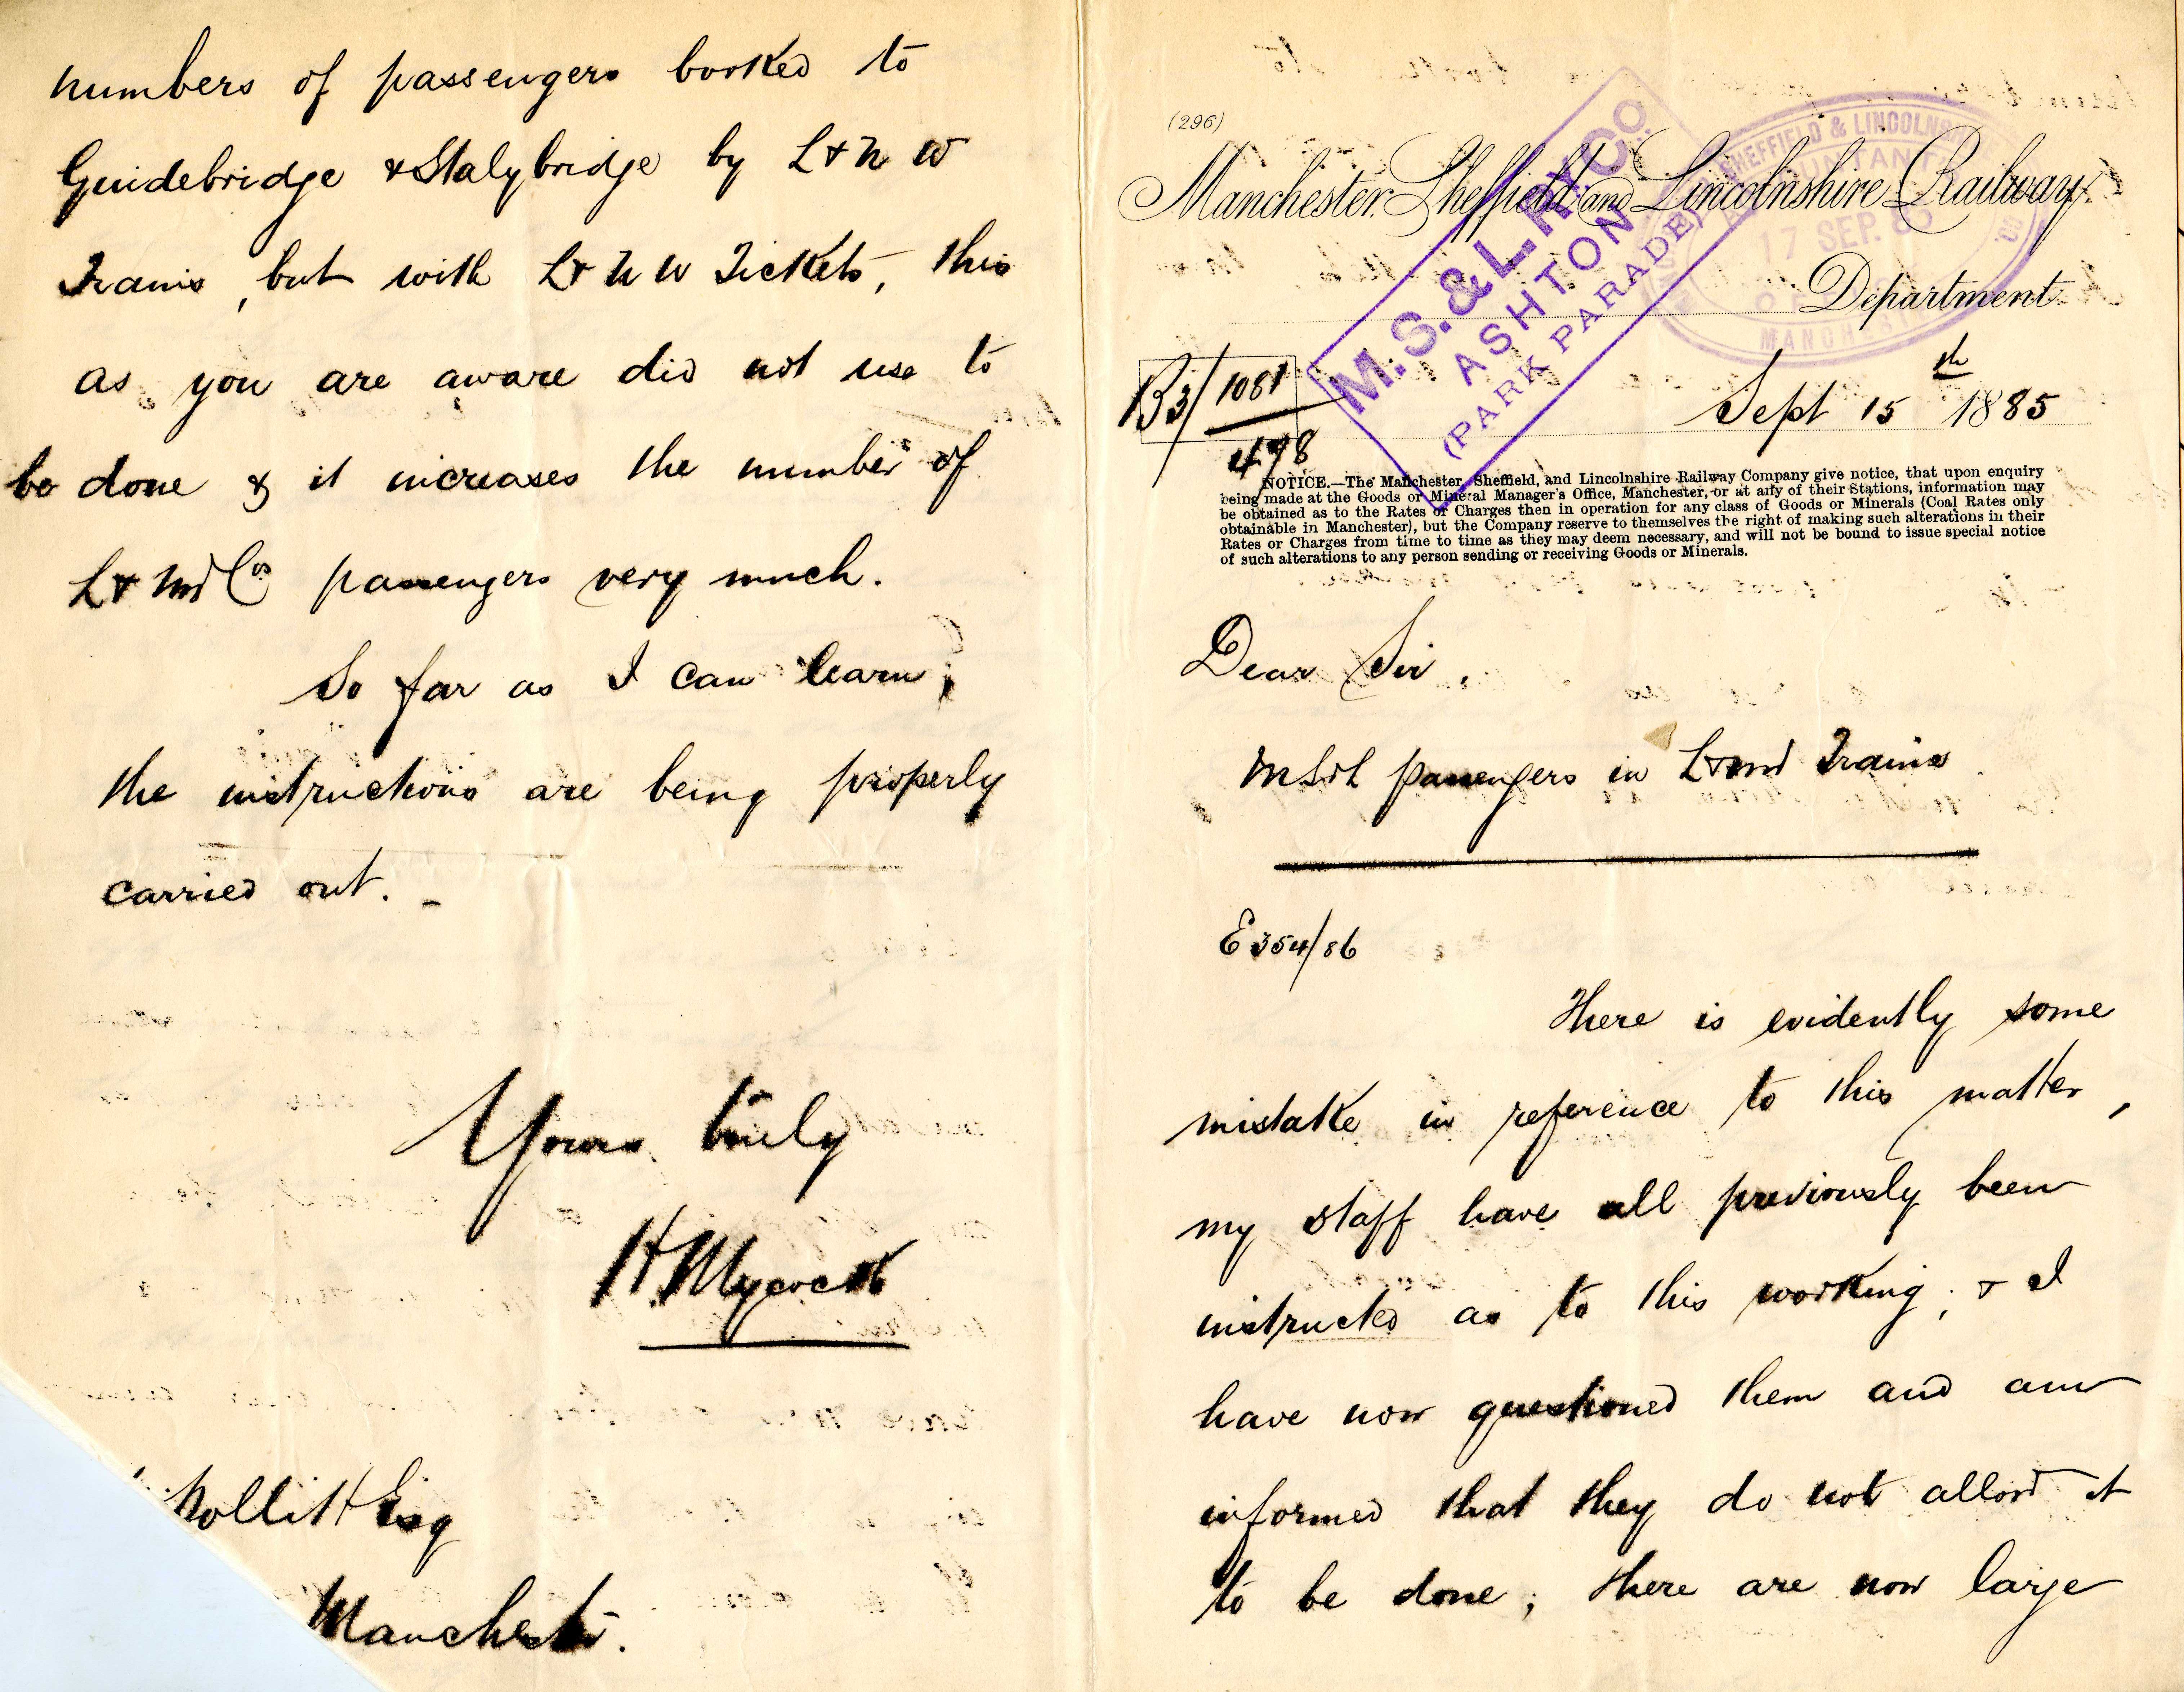 (296)
Manchester, Sheffield and Lincolnshire Railway.
Department.
M. S. & L. RY CO
ASHTON
(PARK PARADE)
SHEFFIELD & LINCOLNSHIRE
17 SEP. 85
MANCHESTER
B3/1081
498
Sept 15th 1885
NOTICE.—The Manchester, Sheffield, and Lincolnshire Railway Company give notice, that upon enquiry
being made at the Goods or Mineral Manager's Office, Manchester, or at any of their Stations, information may
be obtained as to the Rates or Charges then in operation for any class of Goods or Minerals (Coal Rates only
obtainable in Manchester), but the Company reserve to themselves the right of making such alterations in their
Rates or Charges from time to time as they may deem necessary, and will not be bound to issue special notice
of such alterations to any person sending or receiving Goods or Minerals.
Dear Sir,
MS&L passengers in L&NW Trains
E354/86
There is evidently some
mistake in reference to this matter,
my staff have all previously been
instructed as to this working; & I
have now questioned them and am
informed that they do not allow it
to be done; there are now large
numbers of passengers booked to
Guidebridge & Stalybridge by L & N W
Trains, but with L & N W Tickets, this
as you are aware did not use to
be done & it increases the number of
L & NW Cos passengers very much.
So far as I can learn,
the instructions are being properly
carried out. -
Yours truly
H Mycock
Pollitt Esq
Manchester.